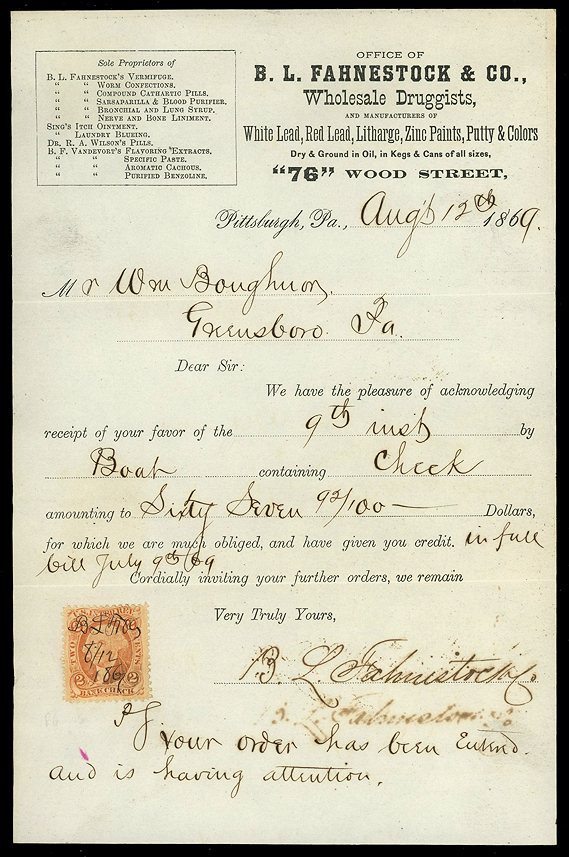 Sole Proprietors of
B. L. FAHNESTOCK'S VERMIFUGE.
" " WORM CONFECTIONS.
" " COMPOUND CATHARTIC PILLS.
" " SARSAPARILLA & BLOOD PURIFIER.
" " BRONCHIAL AND LUNG SYRUP.
" " NERVE AND BONE LINIMENT.
SING'S ITCH OINTMENT.
" LAUNDRY BLUEING.
DR. R. A. WILSON'S PILLS.
B. F. VANDEVORT'S FLAVORING EXTRACTS.
" " SPECIFIC PASTE.
" " AROMATIC CACHOUS.
" " PURIFIED BENZOLINE.
OFFICE OF
B. L. FAHNESTOCK & CO.,
Wholesale Druggists,
AND MANUFACTURERS OF
White Lead, Red Lead, Litharge, Zinc Paints, Putty & Colors
Dry & Ground in Oil, in Kegs & Cans of all sizes,
"76" WOOD STREET,
Pittsburgh, Pa., Augt 12th 1869.
Mr Wm Boughner,
Greensboro. Pa.
Dear Sir:
We have the pleasure of acknowledging
receipt of your favor of the 9th inst by
Boat containing Check
amounting to Sixty Seven 92/100 Dollars,
for which we are much obliged, and have given you credit. in full
bill July 9th/69
Cordially inviting your further orders, we remain
Very Truly Yours,
B. L. Fahnestock Co.
U.S. INTER. REV.
B L F Co
8/12
1869
TWO CENTS
2 2
BANK CHECK
PS
Your order has been Enterd.
and is having attention.